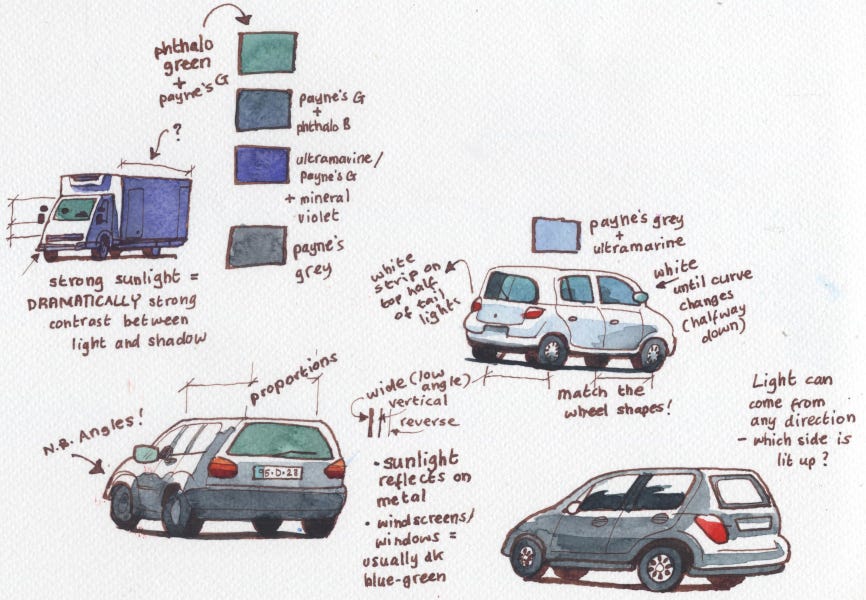 phthalo
green
+
payne's G
payne's G
+
phthalo B
?
ultramarine/
payne's G
+ mineral
violet
payne's
grey
strong sunlight =
DRAMATICALLY strong
contrast between
light and shadow
payne's grey
+
ultramarine
white
strip on
top half
of tail
lights
white
until curve
changes
(halfway
down)
match the
wheel shapes!
proportions
N.B. Angles!
95·D·28
wide (low
angle)
vertical
reverse
• sunlight
reflects on
metal
• windscreens/
windows =
usually dk
blue-green
Light can
come from
any direction
- which side is
lit up?